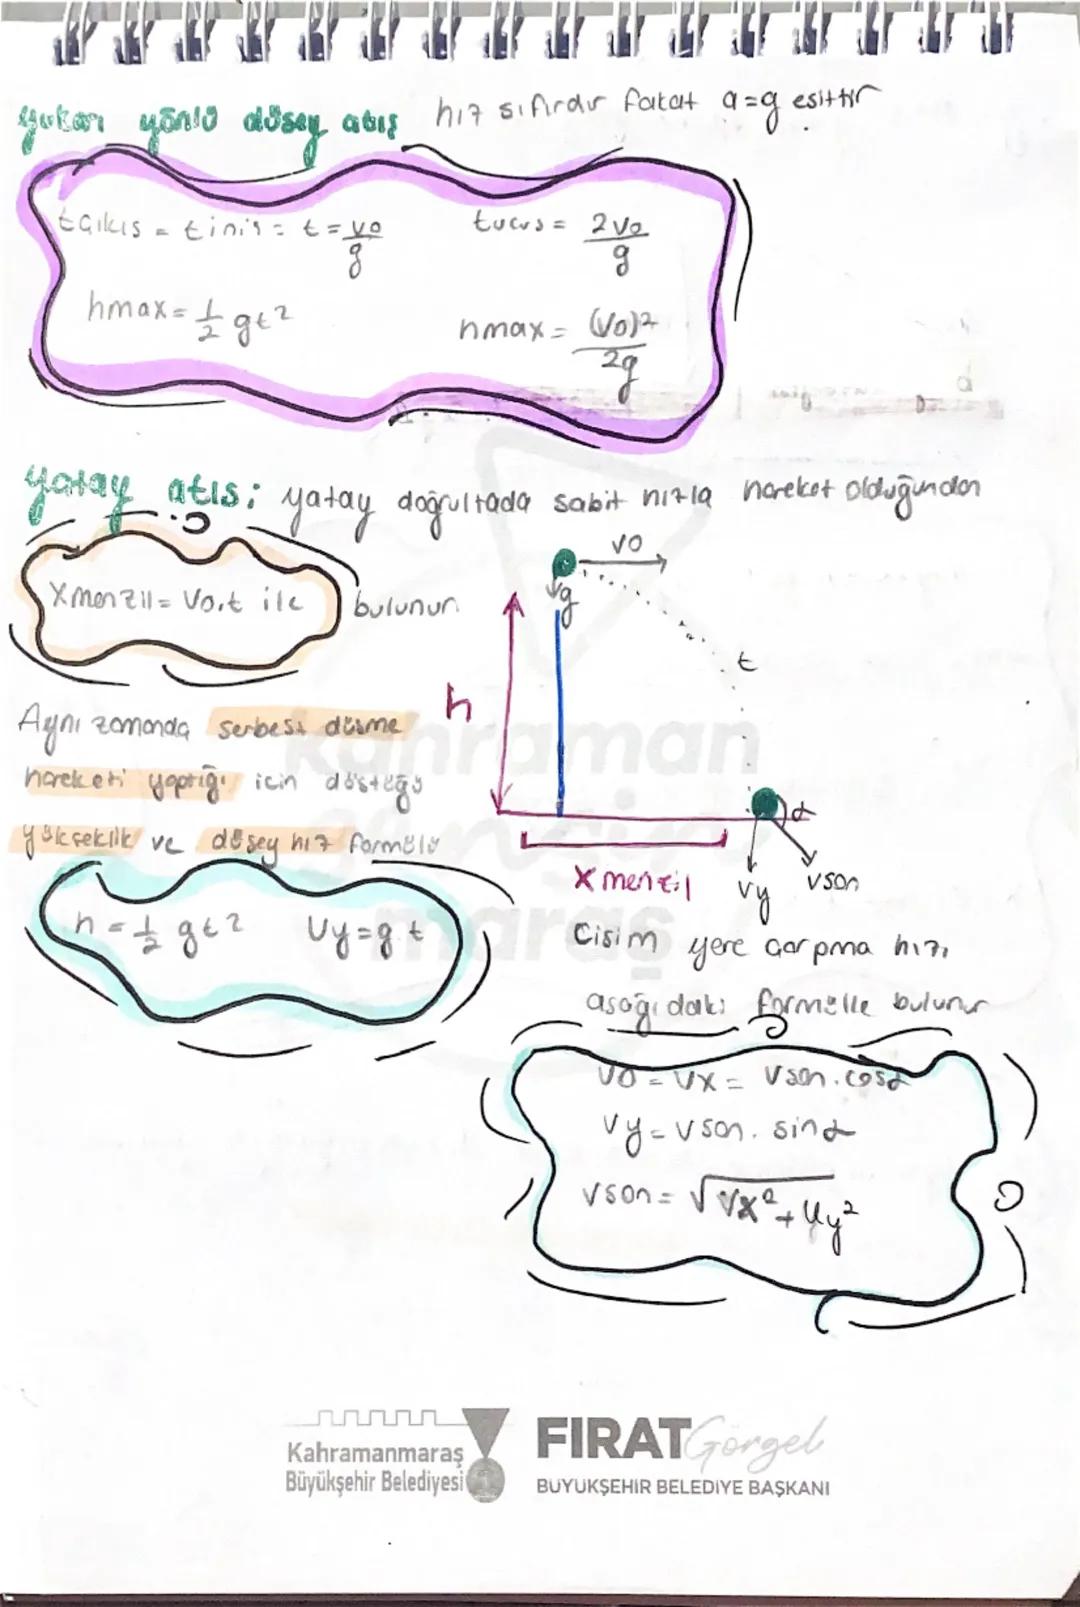 yukarı yönlü düşey atış hız sıfırdır fakat a=g eşittir
tçıkış = tiniş = t = v0/g
tuçuş = 2v0/g
hmax = 1/2 gt²
hmax = (v0)²/2g
yatay atış: yatay doğrultada sabit hızla hareket olduğundan
Xmenzil = V0.t ile bulunur
v0
g
t
h
Aynı zamanda serbest düşme
hareketi yaptığı için düştüğü
yükseklik ve düşey hız formülü
α
X menzil
vy
vson
h = 1/2 gt² Vy = g.t
Cisim yere çarpma hızı
aşağıdaki formülle bulunur
V0 = Vx = Vson.cosα
Vy = Vson.sinα
Vson = √Vx² + Vy²
kahraman
maraş
Kahramanmaraş
Büyükşehir Belediyesi
FIRAT Görgel
BÜYÜKŞEHİR BELEDİYE BAŞKANI